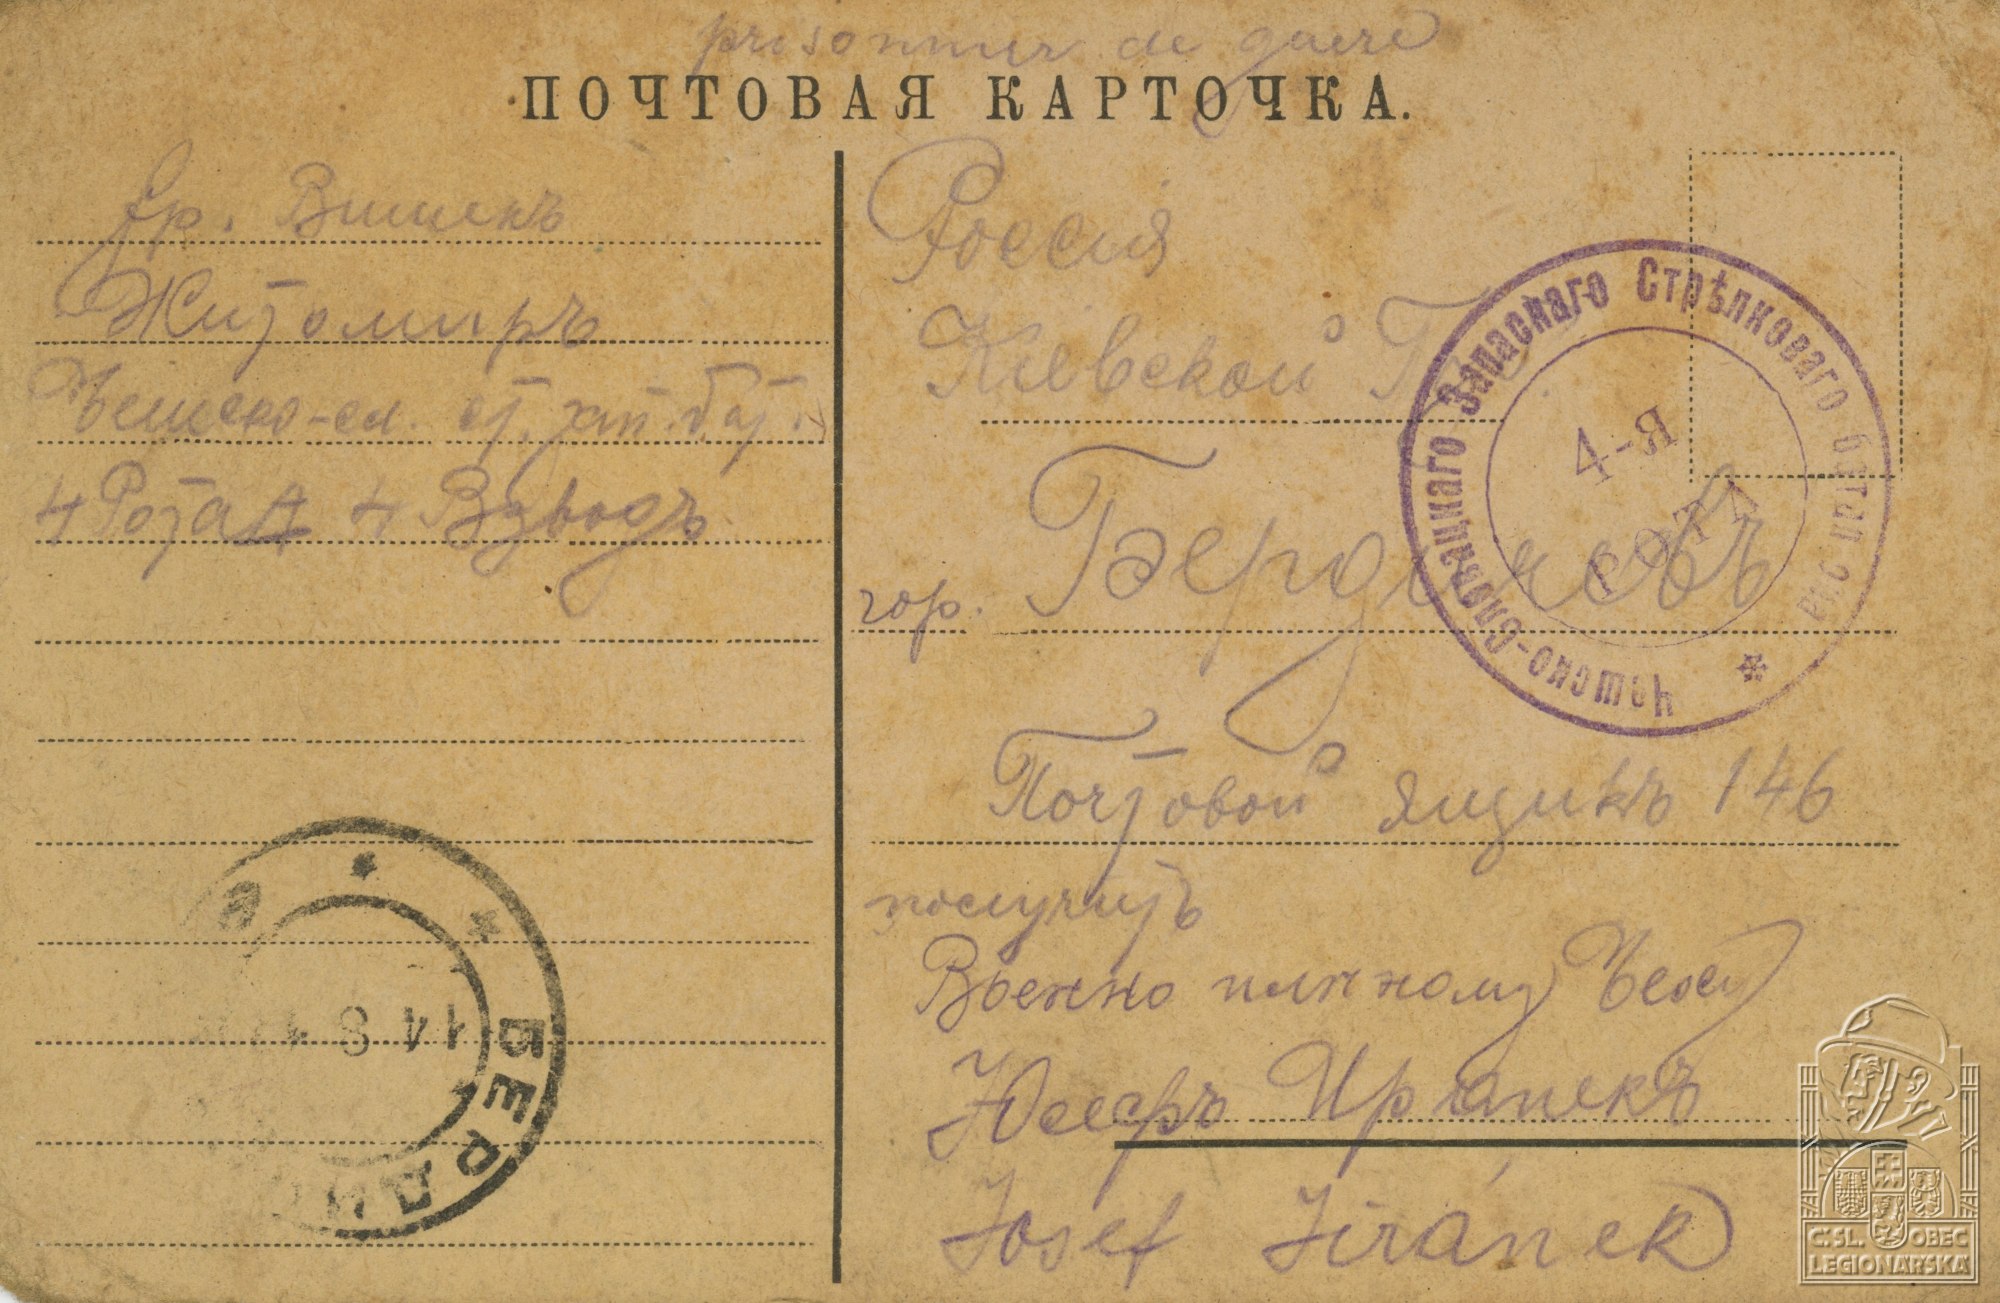 prisonnier de guere
ПОЧТОВАЯ КАРТОЧКА.
Фр. Вишекъ
Житомиръ
Чешско-сл. ст. зап. бат.
4 Рота 4 Взводъ
Россія
Кіевской Г.
гор. Бердичевъ
Почтовой ящикъ 146
получитъ
Военно плѣнному Чеху
Юсефъ Ираnекъ
Josef Jiránek
Чешско-Словацкаго Запаснаго Стрѣлковаго батал
4-я
РОТА
БЕРДИ
14 8 1
C.SL. OBEC
LEGIONÁRSKÁ